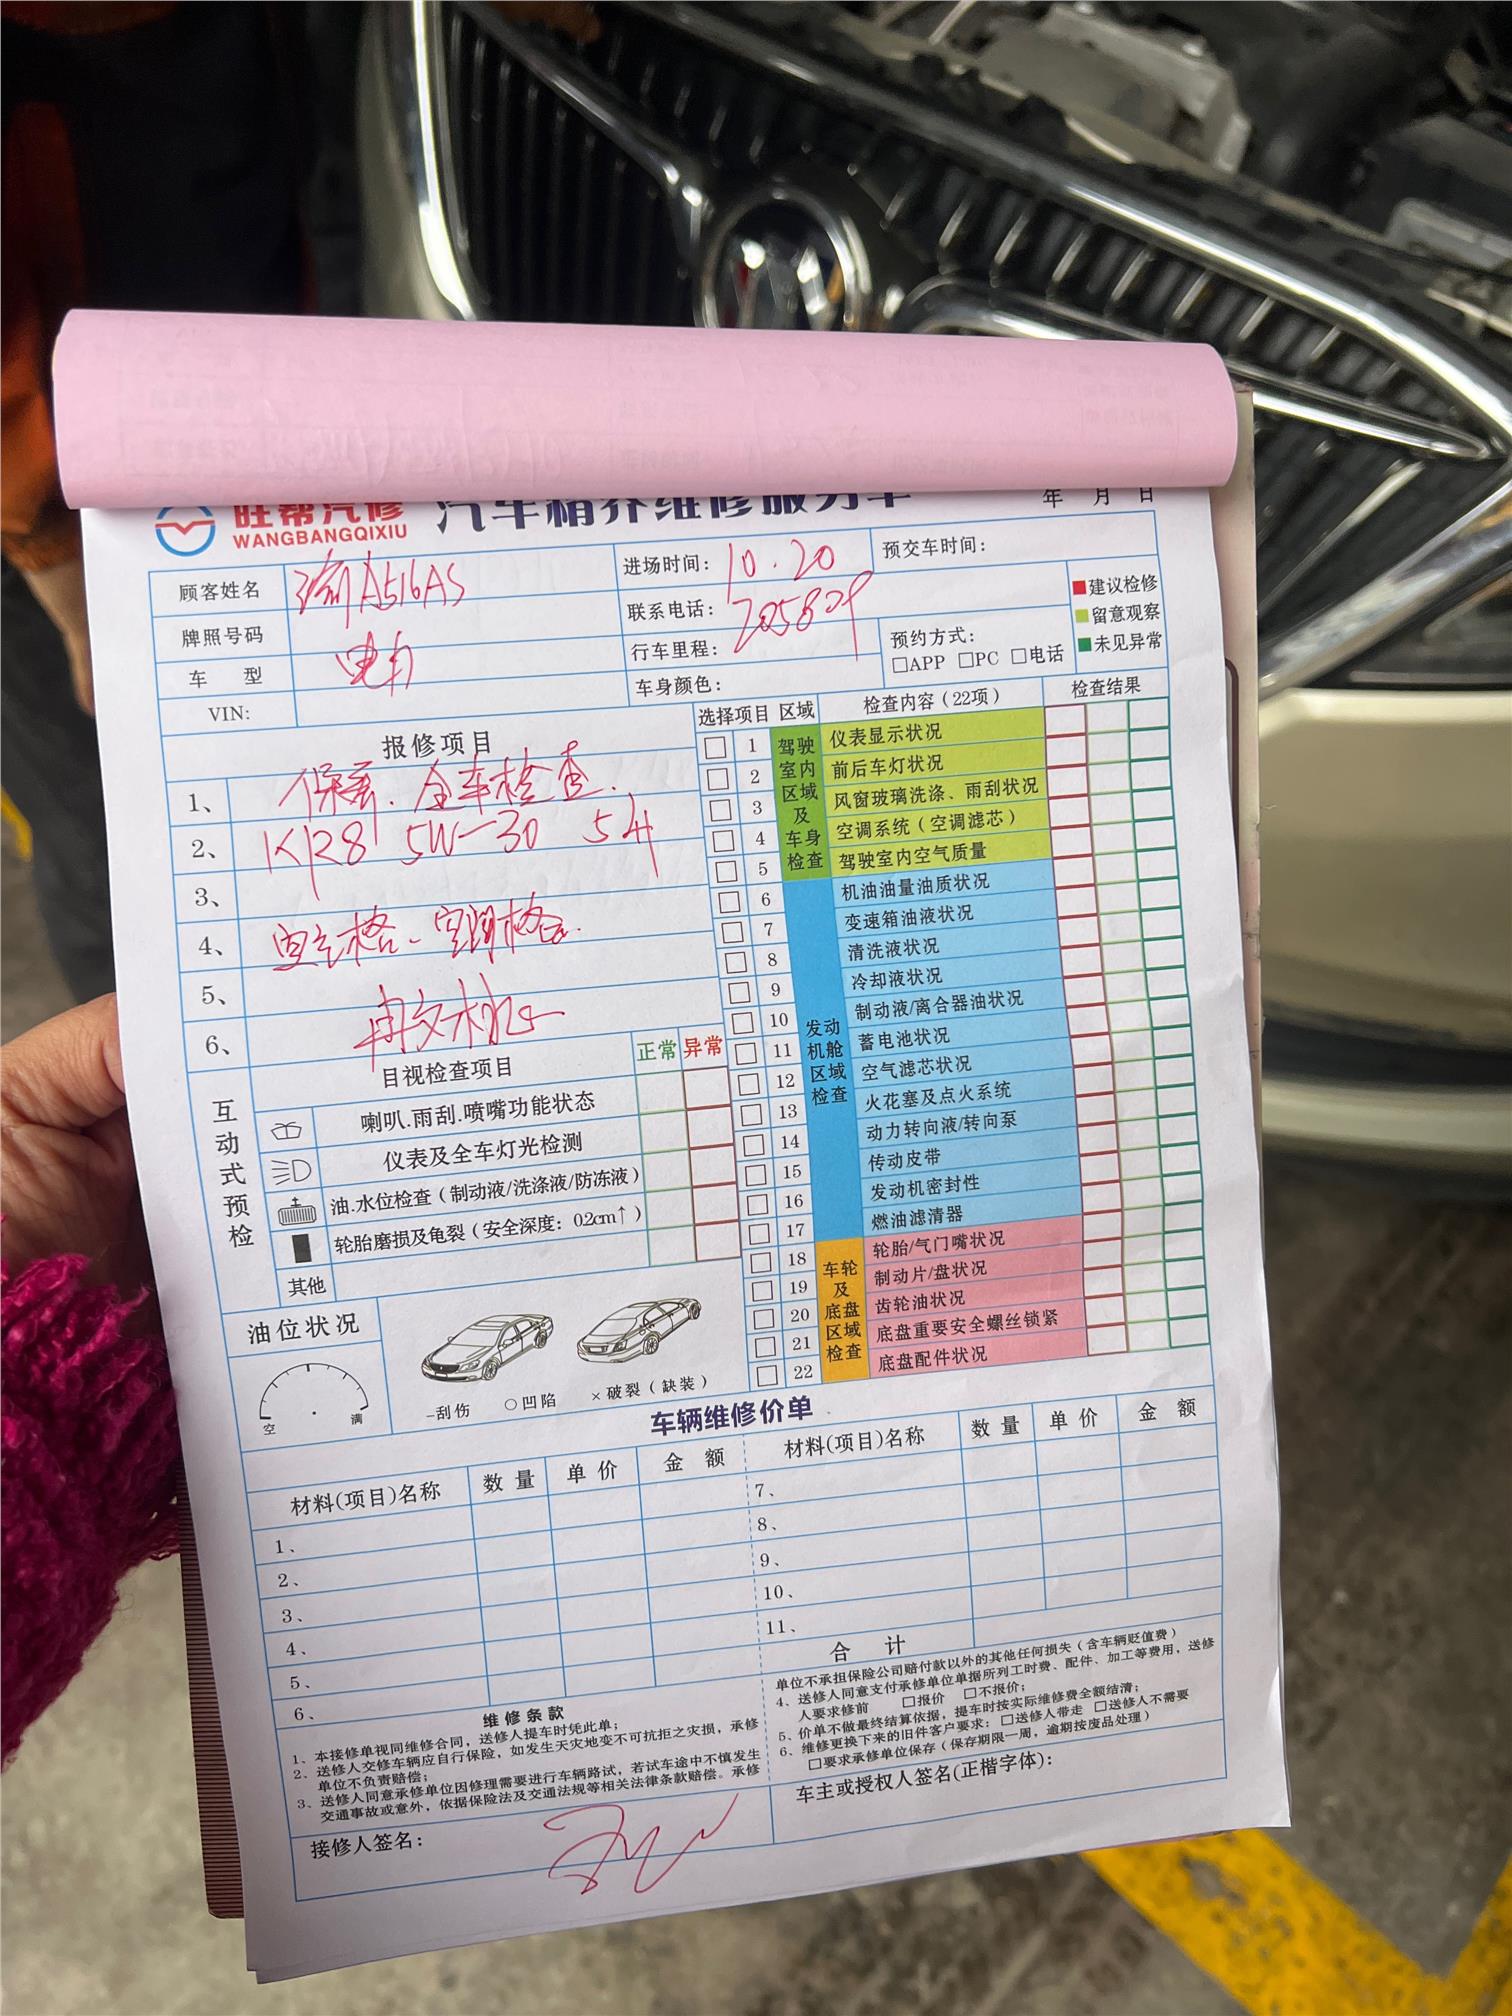 旺帮汽修 汽车精养维修服务单
WANGBANGQIXIU
年 月 日
顾客姓名
A516AS
进场时间： 10.20
预交车时间：
牌照号码
联系电话：
车 型
行车里程： 205809
预约方式：
□APP □PC □电话
VIN:
车身颜色：
建议检修
留意观察
未见异常
报修项目
1、 保养、全车检查.
2、 K128 5W-30 5升
3、
4、 空气格、空调格
5、
6、
选择项目 区域 检查内容（22项） 检查结果
驾驶室内区域及车身检查
1 仪表显示状况
2 前后车灯状况
3 风窗玻璃洗涤、雨刮状况
4 空调系统（空调滤芯）
5 驾驶室内空气质量
发动机舱区域检查
6 机油油量油质状况
7 变速箱油液状况
8 清洗液状况
9 冷却液状况
10 制动液/离合器油状况
11 蓄电池状况
12 空气滤芯状况
13 火花塞及点火系统
14 动力转向液/转向泵
15 传动皮带
16 发动机密封性
17 燃油滤清器
车轮及底盘区域检查
18 轮胎/气门嘴状况
19 制动片/盘状况
20 齿轮油状况
21 底盘重要安全螺丝锁紧
22 底盘配件状况
互动式预检
目视检查项目 正常 异常
喇叭.雨刮.喷嘴功能状态
仪表及全车灯光检测
油.水位检查（制动液/洗涤液/防冻液）
轮胎磨损及龟裂（安全深度：0.2cm↑）
其他
油位状况
空 满
-刮伤 ○凹陷 ×破裂（缺装）
车辆维修价单
材料(项目)名称 数 量 单 价 金 额 材料(项目)名称 数 量 单 价 金 额
1、 7、
2、 8、
3、 9、
4、 10、
5、 11、
6、 合 计
维修条款
1、本接修单视同维修合同，送修人提车时凭此单；
2、送修人交修车辆应自行保险，如发生天灾地变不可抗拒之灾损，承修
单位不负责赔偿；
3、送修人同意承修单位因修理需要进行车辆路试，若试车途中不慎发生
交通事故或意外，依据保险法及交通法规等相关法律条款赔偿。承修
单位不承担保险公司赔付款以外的其他任何损失（含车辆贬值费）
4、送修人同意支付承修单位单据所列工时费、配件、加工等费用，送修
人要求修前 □报价 □不报价；
5、价单不做最终结算依据，提车时按实际维修费全额结清；
6、维修更换下来的旧件客户要求：□送修人带走 □送修人不需要
□要求承修单位保存（保存期限一周，逾期按废品处理）
接修人签名：
车主或授权人签名(正楷字体)：